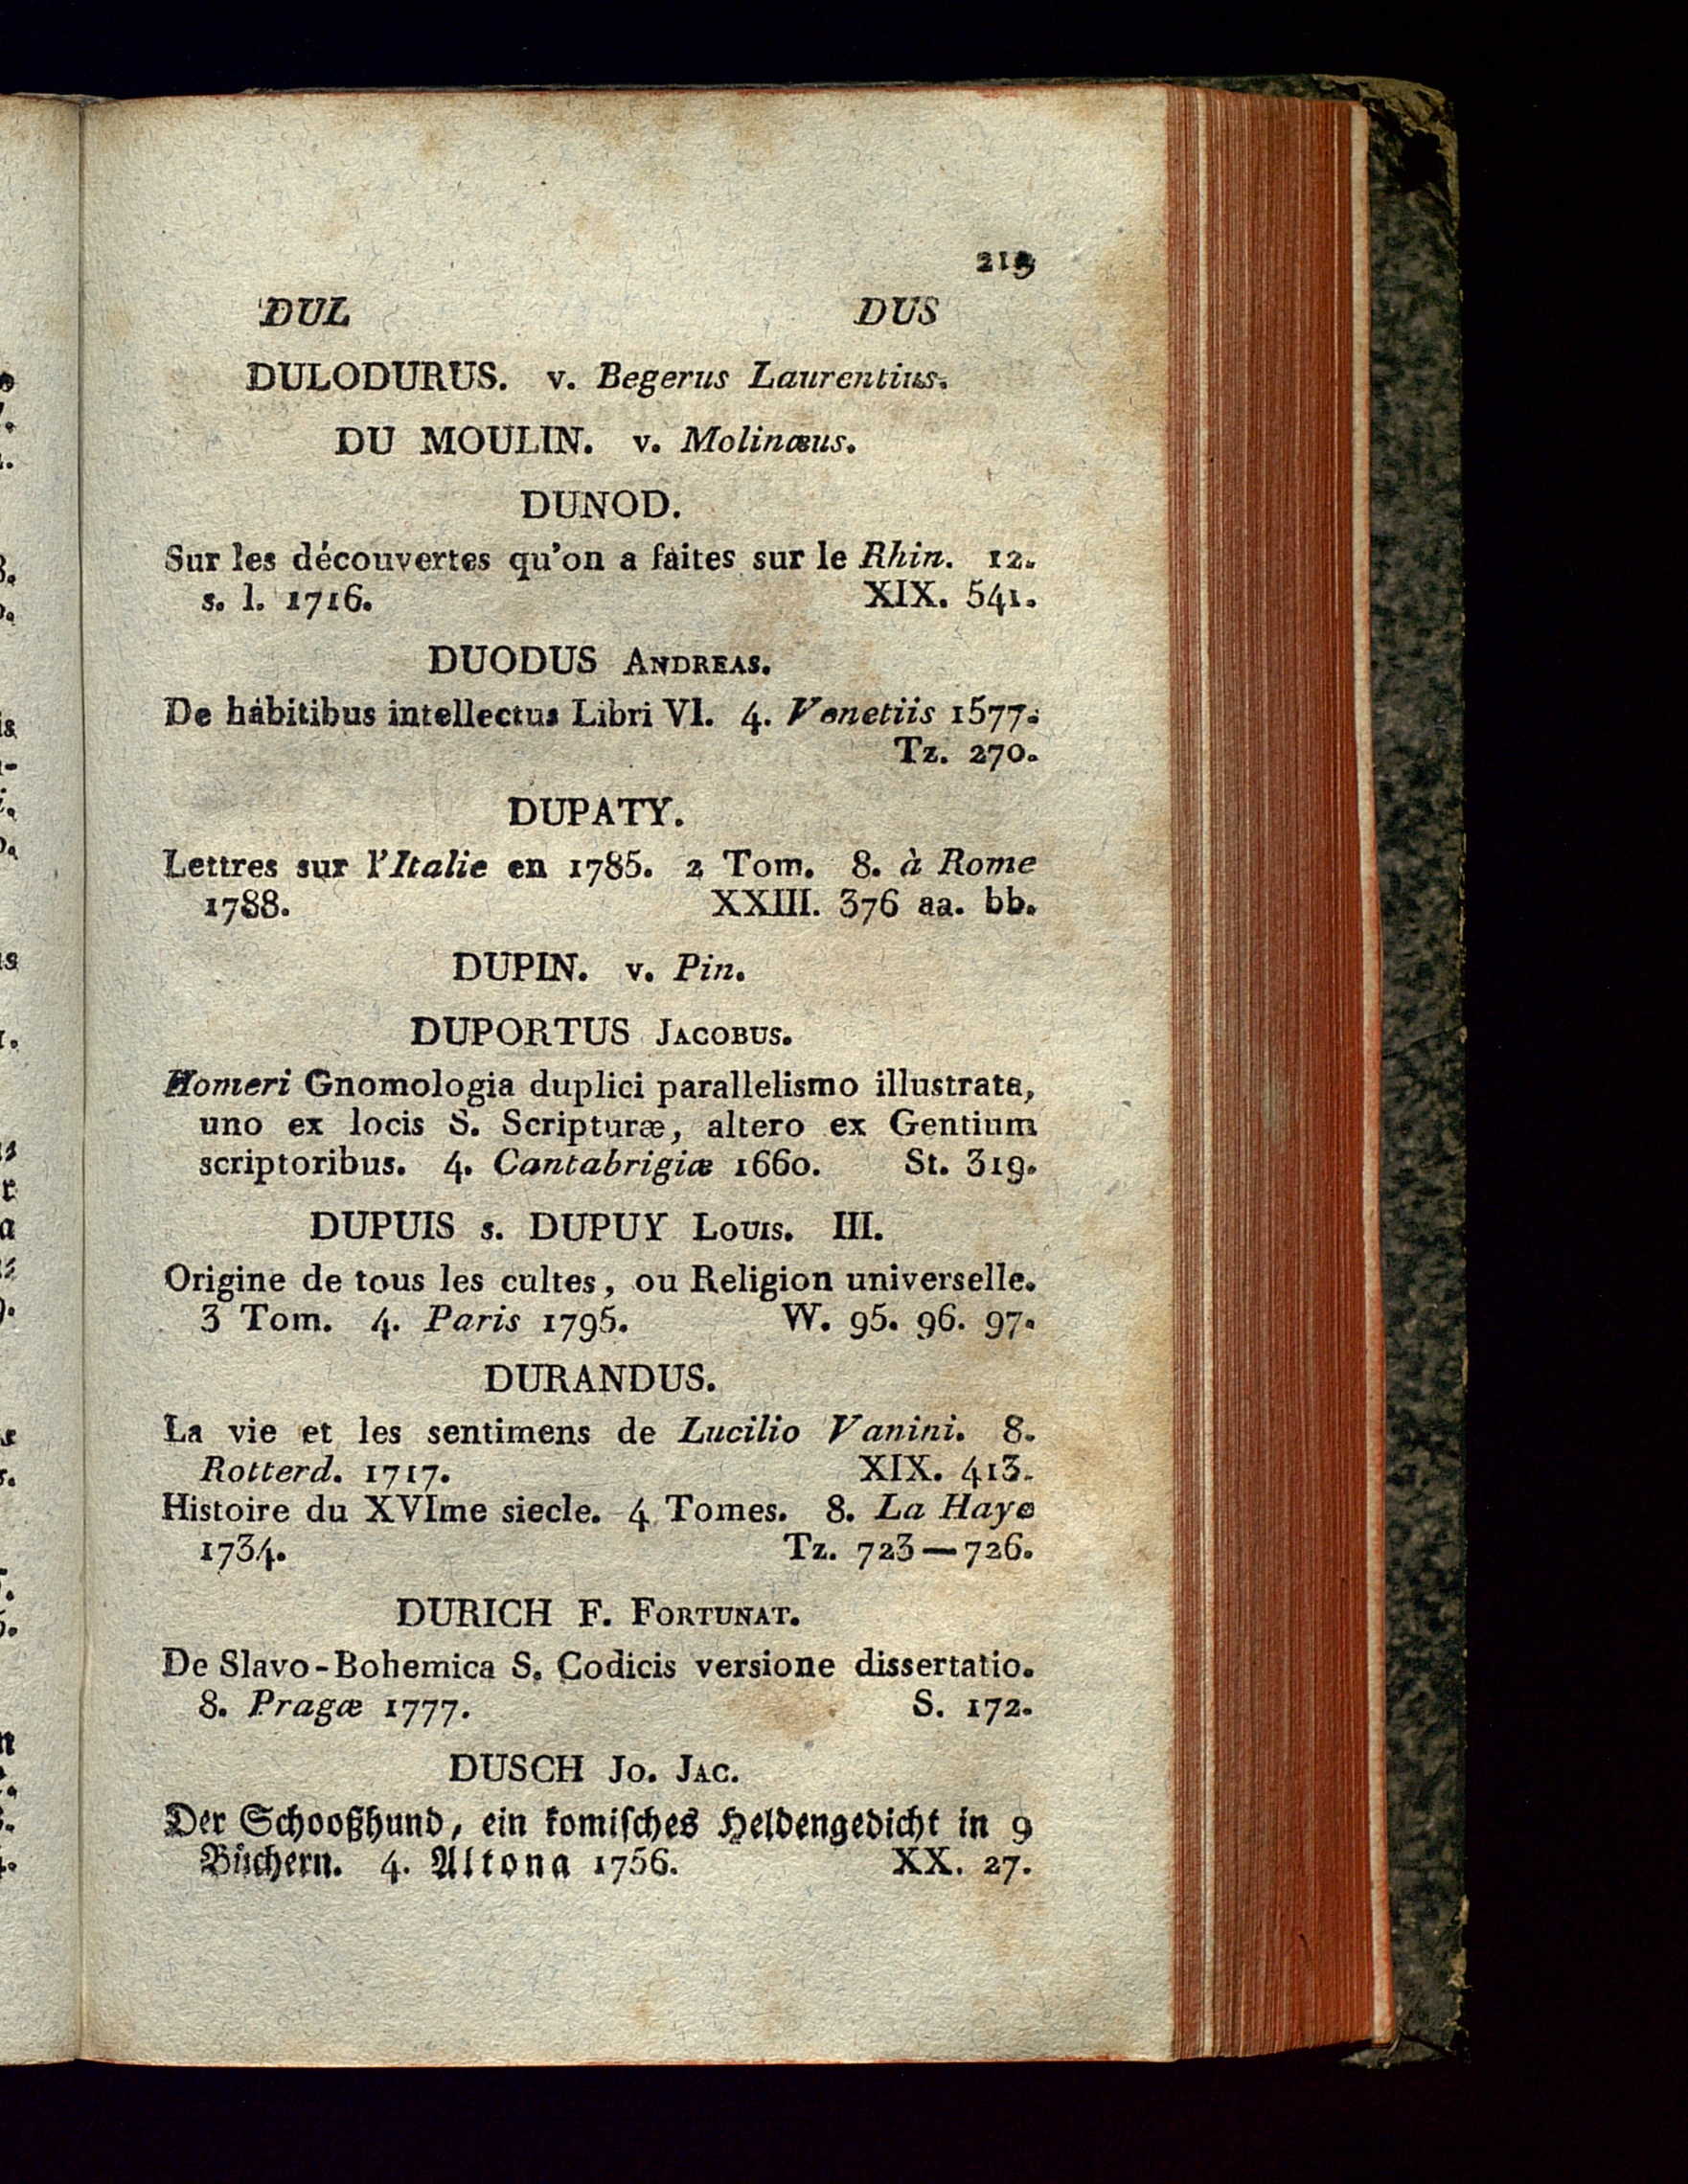 219
DUL DUS
DULODURUS. v. Begerus Laurentius.
DU MOULIN. v. Molinæus.
DUNOD.
Sur les découvertes qu'on a faites sur le Rhin. 12.
s. l. 1716. XIX. 541.
DUODUS ANDREAS.
De habitibus intellectus Libri VI. 4. Venetiis 1577.
Tz. 270.
DUPATY.
Lettres sur l'Italie en 1785. 2 Tom. 8. à Rome
1788. XXIII. 376 aa. bb.
DUPIN. v. Pin.
DUPORTUS JACOBUS.
Homeri Gnomologia duplici parallelismo illustrata,
uno ex locis S. Scripturæ, altero ex Gentium
scriptoribus. 4. Cantabrigiæ 1660. St. 319.
DUPUIS s. DUPUY LOUIS. III.
Origine de tous les cultes, ou Religion universelle.
3 Tom. 4. Paris 1795. W. 95. 96. 97.
DURANDUS.
La vie et les sentimens de Lucilio Vanini. 8.
Rotterd. 1717. XIX. 413.
Histoire du XVIme siecle. 4 Tomes. 8. La Haye
1734. Tz. 723—726.
DURICH F. FORTUNAT.
De Slavo-Bohemica S. Codicis versione dissertatio.
8. Pragæ 1777. S. 172.
DUSCH JO. JAC.
Der Schooßhund, ein komisches Heldengedicht in 9
Büchern. 4. Altona 1756. XX. 27.